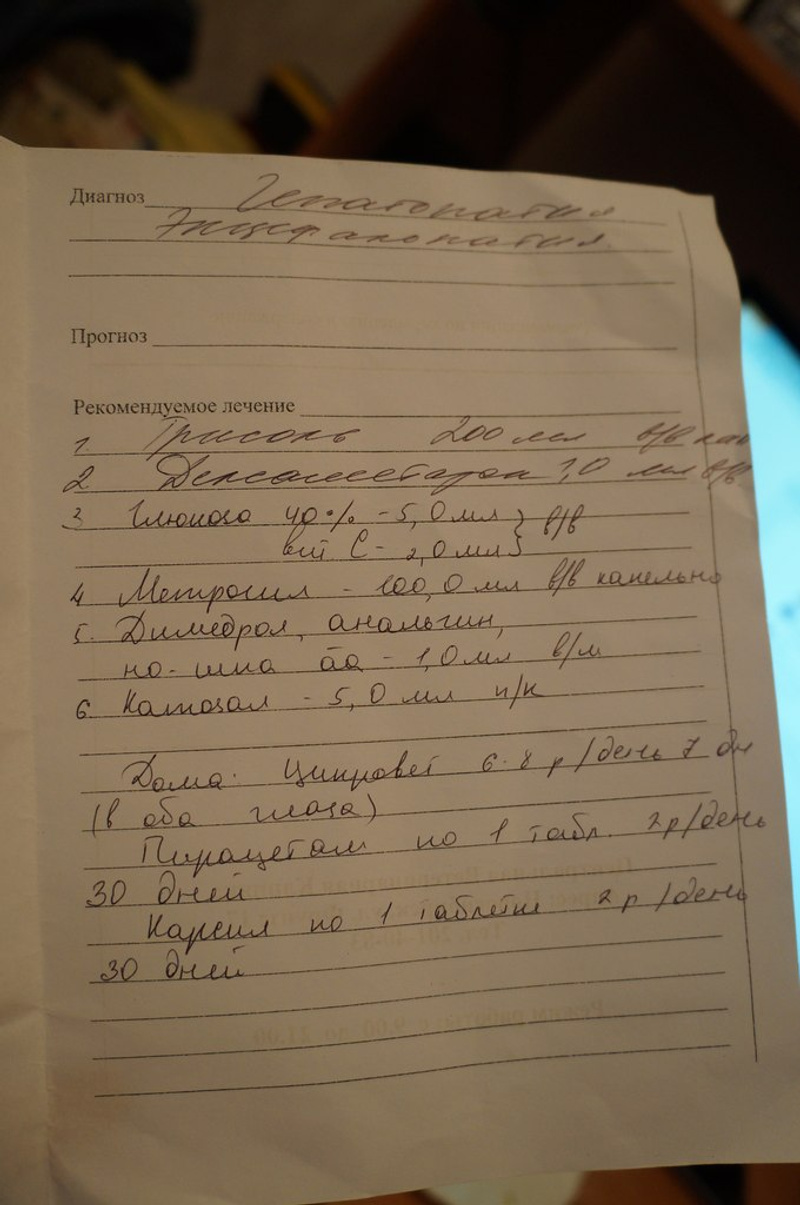 Диагноз Гепатопатия
Энцефалопатия.
Прогноз
Рекомендуемое лечение
1. Трисоль 200 мл в/в кап
2. Дексаметазон 1,0 мл в/в
3 Глюкоза 40% - 5,0 мл } в/в
вит С - 2,0 мл }
4 Метрогил - 100,0 мл в/в капельно
5. Димедрол, анальгин,
но-шпа āа - 1,0 мл в/м
6 Катозал - 5,0 мл п/к
Дома: Ципровет 6-8 р/день 7 дн
(в оба глаза)
Пирацетам по 1 табл. 2р/день
30 дней
Карсил по 1 таблетке 2 р/день
30 дней